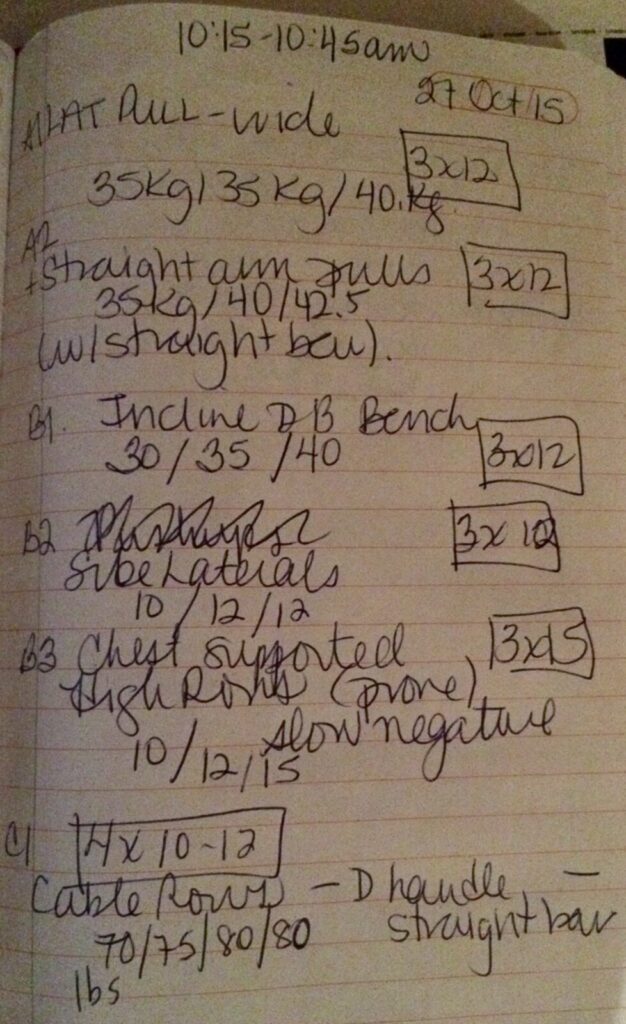 10:15-10:45am
27 Oct/15
A1 LAT PULL - wide
3x12
35kg/35kg/40.kg
A2
+Straight arm pulls
3x12
35kg/40/42.5
(w/straight bar).
B1. Incline DB Bench
30/35/40
3x12
B2
3x10
Side Laterals
10/12/12
B3 Chest supported
3x15
High Rows (prone)
slow negative
10/12/15
C1 4x10-12
Cable Rows - D handle, -
straight bar
70/75/80/80
lbs